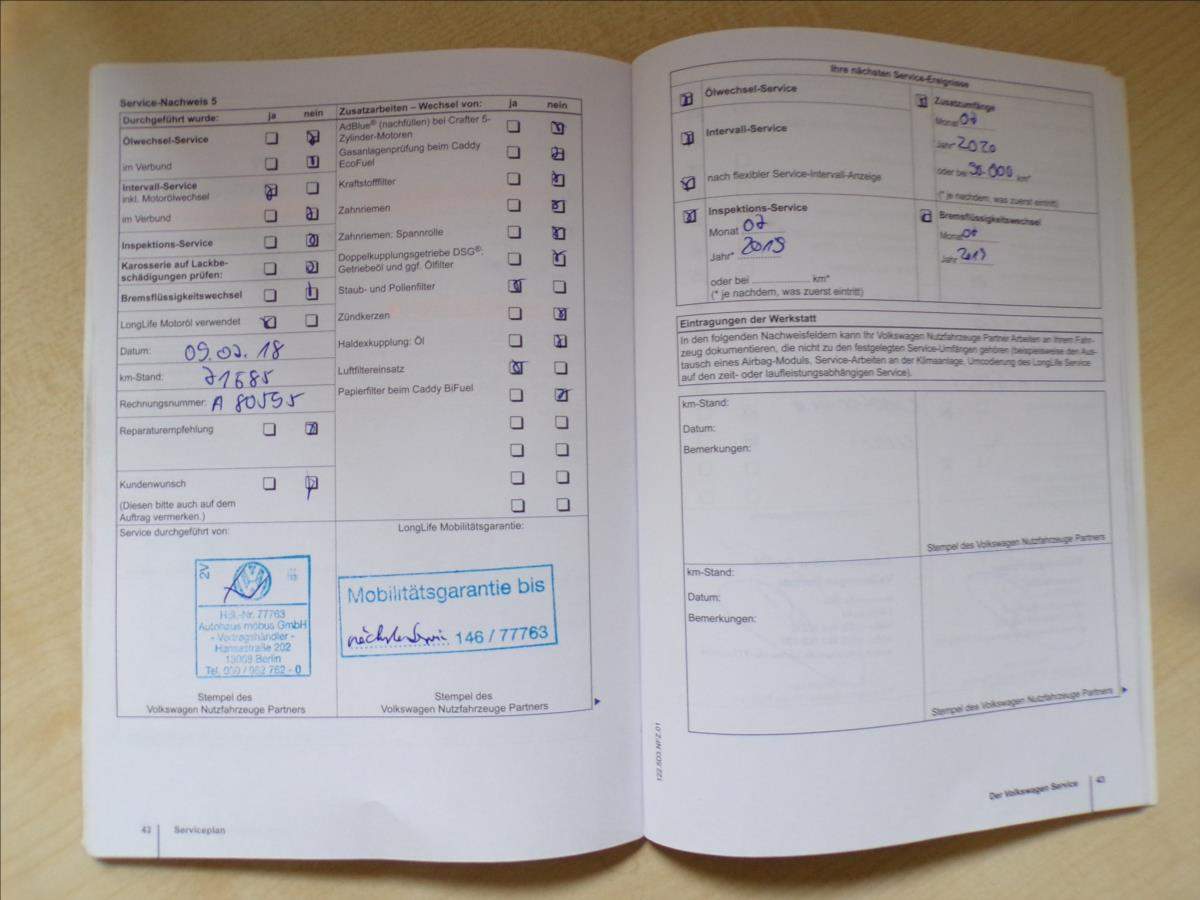 Service-Nachweis 5
Durchgeführt wurde: ja nein
Ölwechsel-Service
im Verbund
Intervall-Service
inkl. Motorölwechsel
im Verbund
Inspektions-Service
Karosserie auf Lackbe-
schädigungen prüfen:
Bremsflüssigkeitswechsel
LongLife Motoröl verwendet
Datum: 09.07.18
km-Stand: 71685
Rechnungsnummer: A 80595
Reparaturempfehlung
Kundenwunsch
(Diesen bitte auch auf dem
Auftrag vermerken.)
Service durchgeführt von:
2V
Hdl.-Nr. 77763
Autohaus möbus GmbH
- Vertragshändler -
Hansastraße 202
Berlin
Stempel des
Volkswagen Nutzfahrzeuge Partners
Zusatzarbeiten – Wechsel von: ja nein
AdBlue® (nachfüllen) bei Crafter 5-
Zylinder-Motoren
Gasanlagenprüfung beim Caddy
EcoFuel
Kraftstofffilter
Zahnriemen
Zahnriemen: Spannrolle
Doppelkupplungsgetriebe DSG®:
Getriebeöl und ggf. Ölfilter
Staub- und Pollenfilter
Zündkerzen
Haldexkupplung: Öl
Luftfiltereinsatz
Papierfilter beim Caddy BiFuel
LongLife Mobilitätsgarantie:
Mobilitätsgarantie bis
146 / 77763
Stempel des
Volkswagen Nutzfahrzeuge Partners
42 Serviceplan
Ihre nächsten Service-Ereignisse
Ölwechsel-Service
Intervall-Service
nach flexibler Service-Intervall-Anzeige
Inspektions-Service
Monat 07
Jahr* 2019
oder bei km*
(* je nachdem, was zuerst eintritt)
Zusatzumfänge
Monat 07
Jahr* 2020
oder bei 90.000 km*
(* je nachdem, was zuerst eintritt)
Bremsflüssigkeitswechsel
Monat 07
Jahr 2019
Eintragungen der Werkstatt
In den folgenden Nachweisfeldern kann Ihr Volkswagen Nutzfahrzeuge Partner Arbeiten an Ihrem Fahr-
zeug dokumentieren, die nicht zu den festgelegten Service-Umfängen gehören (beispielsweise den Aus-
tausch eines Airbag-Moduls, Service-Arbeiten an der Klimaanlage, Umcodierung des LongLife Service
auf den zeit- oder laufleistungsabhängigen Service).
km-Stand:
Datum:
Bemerkungen:
Stempel des Volkswagen Nutzfahrzeuge Partners
km-Stand:
Datum:
Bemerkungen:
Stempel des Volkswagen Nutzfahrzeuge Partners
122.5D3.NFZ.01
Der Volkswagen Service 43